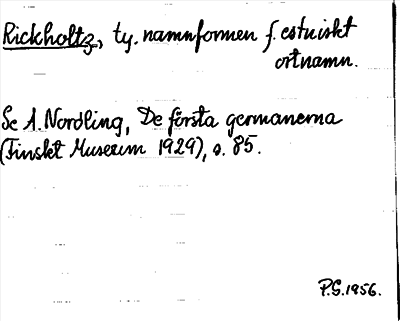 Rickholtz, ty. namnformen f. estniskt
ortnamn.
Se A. Nordling, De första germanerna
(Finskt Museum 1929), s. 85.
P.S. 1956.